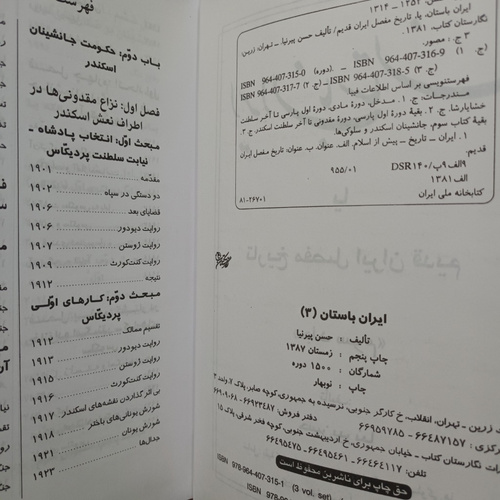 ایران باستان، یا، تاریخ مفصل ایران قدیم / تألیف حسن پیرنیا. ـ تهران:
نگارستان کتاب، ۱۳۸۱.
۳ ج.: مصور.
ISBN 964-407-315-0 (دوره) ـ ISBN 964-407-316-9 (ج. ۱)
ISBN 964-407-317-7 (ج. ۲) ـ ISBN 964-407-318-5 (ج. ۳)
فهرستنویسی بر اساس اطلاعات فیپا.
مندرجات: ج. ۱. مدخل، دورهٔ مادی، دورهٔ اول پارسی تا آخر سلطنت
خشایارشا. ج. ۲. بقیهٔ دورهٔ اول پارسی، دورهٔ مقدونی تا آخر سلطنت اسکندر. ج. ۳.
بقیهٔ کتاب سوم، جانشینان اسکندر و سلوکی‌ها.
۱. ایران ـ تاریخ ـ پیش از اسلام. الف. عنوان. ب. عنوان: تاریخ مفصل ایران
قدیم.
۹ الف ۹ پ / DSR ۱۴۰ ۹۵۵/۰۱
الف ۱۳۸۱
کتابخانه ملی ایران ۸۱-۲۶۷۰۱
ایران باستان (۳)
تألیف : حسن پیرنیا
چاپ پنجم : زمستان ۱۳۸۷
شمارگان : ۱۵۰۰ دوره
چاپ : نوبهار
زرین - تهران، انقلاب، خ کارگر جنوبی، نرسیده به جمهوری، کوچه صابر، پلاک ۷، واحد ۳
مرکزی : ۶۶۴۸۷۱۵۷ - ۶۶۹۵۹۷۸۵ دفتر فروش: ۶۶۹۲۳۴۸۷ - ۶۶۹۰۹۰۶۸
نگارستان کتاب - خیابان جمهوری، خ اردیبهشت جنوبی، کوچه فخر شرقی، پلاک ۱۵
تلفن: ۶۶۴۶۴۱۱۷ - ۶۶۴۹۵۴۶۱ - ۶۶۴۹۵۴۷۵
حق چاپ برای ناشرین محفوظ است
ISBN: 978-964-407-315-1 (3 vol. set)
فهرست
باب دوّم: حکومت جانشینان
اسکندر
فصل اول: نزاع مقدونی‌ها در
اطراف نعش اسکندر
مبحث اوّل: انتخاب پادشاه -
نیابت سلطنت پردیکّاس
مقدّمه ۱۹۰۱
دو دستگی در سپاه ۱۹۰۲
قضایای بعد ۱۹۰۶
روایت دیودور ۱۹۰۶
روایت ژوستن ۱۹۰۷
روایت کنت‌کورث ۱۹۰۹
نتیجه ۱۹۱۲
مبحث دوّم: کارهای اوّلی
پردیکّاس
تقسیم ممالک ۱۹۱۲
روایت دیودور ۱۹۱۳
روایت ژوستن ۱۹۱۵
روایت کنت‌کورث ۱۹۱۶
بی اثر گذاردن نقشه‌های اسکندر ۱۹۱۷
شورش یونانی‌های باختر ۱۹۱۸
شورش یونان ۱۹۲۱
جدال‌ها ۱۹۲۳